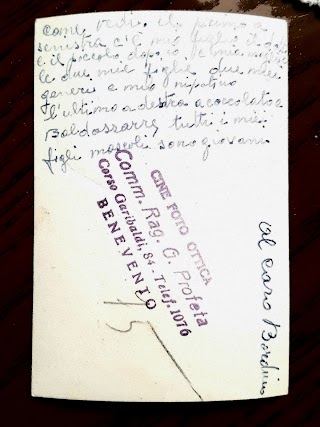 Come vedi il primo a
sinistra c'è mio figlio il
e il piccolo dopo io la mia
le due mie figlie due miei
generi e mio nipotino
l'ultimo a destra accoccolato a
Baldassarre tutti i miei
figli mascoli sono giovani
CINE FOTO OTTICA
Comm. Rag. G. Profeta
Corso Garibaldi, 84 - Telef. 1076
BENEVENTO
15
Al caro